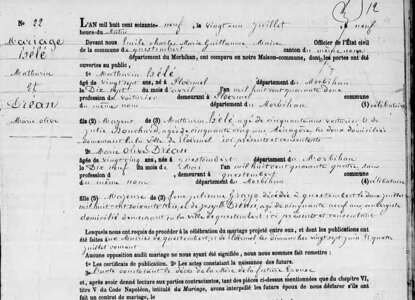 No 22
Mariage
hélé
Mathurin
ET
Dréan
Marie olive
L'AN mil huit cent soixante- neuf le vingt un juillet à neuf
heure du Matin
Devant nous Emile Charles Marie Guillaume Maire Officier de l'État civil
de la commune de questembert canton du même nom
département du Morbihan, ont comparu en notre Maison-commune, dont les portes ont été
ouvertes au public;
1o Mathurin hélé
âgé de vingt sept ans né à Ploërmel département du Morbihan
le Dix sept du mois d'avril l'an mil huit cent quarante deux
profession de voiturier demeurant à Ploërmel
du même nom département du Morbihan (1) célibataire
fils (2) Majeur de (3) Mathurin hélé agé de cinquante ans voiturier, & de
julie Bouchard agée de cinquante cinq ans Ménagère les deux domiciliés
demeurant à la ville de Ploërmel ici présents et consentants
2o Marie Olive Dréan
âgée de vingt cinq ans, née à questembert département du Morbihan
le Dix neuf du mois de l'an mil huit cent quarante quatre
profession d demeurant à questembert
du même nom département du Morbihan (4) célibataire
fille (5) Majeure de (3) feue décédée à questembert le deux juillet
mil huit cent soixante & de joseph agé de cinquante neuf ans
domicilié demeurant à la ville de questembert ici présent et consentant
Lesquels nous ont requis de procéder à la célébration du mariage projeté entre eux, et dont les publications
ont été faites aux Mairies de questembert, & de Ploërmel les dimanches vingt sept juin &
juillet courant
Aucune opposition audit mariage ne nous ayant été signifiée, nous nous sommes fait remettre :
1o Le certificat de publication. 2o Les actes constatant la naissance des futurs.
3o L'acte constatant le décès de la Mère de la future Epouse
et, après avoir donné lecture aux parties contractantes, tant des pièces ci-dessus mentionnées que du chapitre VI,
titre V du Code Napoléon, intitulé du Mariage, avons interpellé les futurs époux de nous déclarer s'il ont
fait un contrat de mariage.